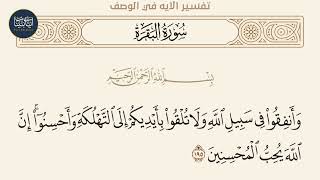 تفسير الايه في الوصف
سُورَةُ البَقَرَةِ
بِسْمِ اللَّهِ الرَّحْمَٰنِ الرَّحِيمِ
وَأَنفِقُوا۟ فِى سَبِيلِ ٱللَّهِ وَلَا تُلْقُوا۟ بِأَيْدِيكُمْ إِلَى ٱلتَّهْلُكَةِ وَأَحْسِنُوٓا۟ۛ إِنَّ
ٱللَّهَ يُحِبُّ ٱلْمُحْسِنِينَ ١٩٥